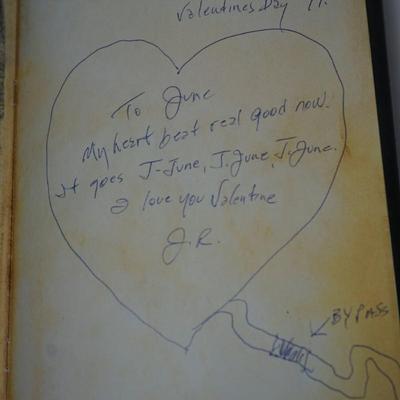 Valentines Day
To June
My heart beat real good now.
It goes J-June, J. June, J. June.
I love you Valentine
J.R.
BYPASS